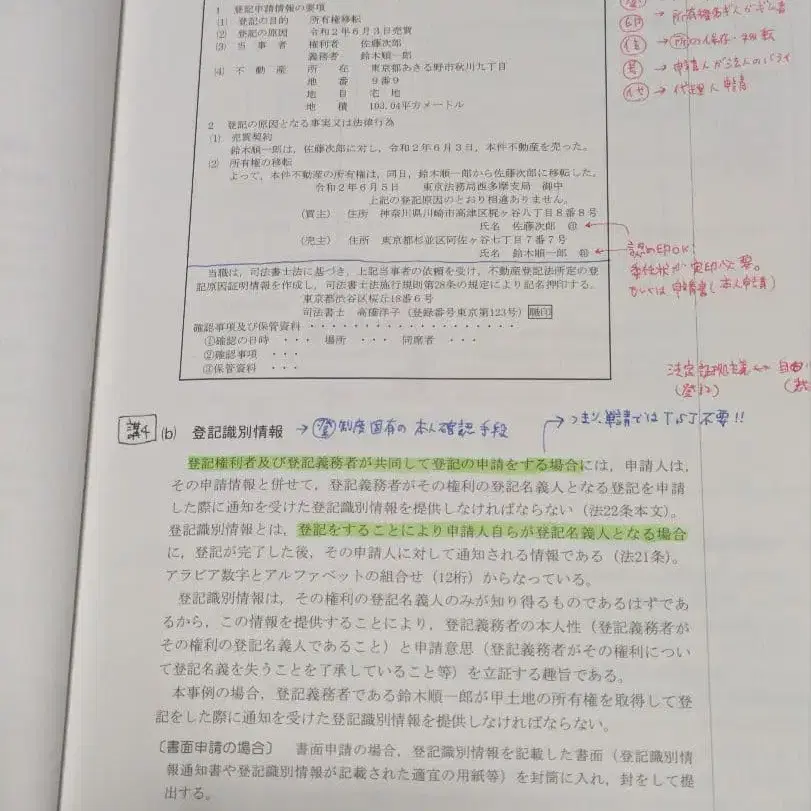 1 登記申請情報の要項
(1) 登記の目的 所有権移転
(2) 登記の原因 令和2年6月3日売買
(3) 当事者 権利者 佐藤次郎
義務者 鈴木順一郎
(4) 不動産 所在 東京都あきる野市秋川九丁目
地番 9番9
地目 宅地
地積 103.04平方メートル
2 登記の原因となる事実又は法律行為
(1) 売買契約
鈴木順一郎は,佐藤次郎に対し,令和2年6月3日,本件不動産を売った。
(2) 所有権の移転
よって,本件不動産の所有権は,同日,鈴木順一郎から佐藤次郎に移転した。
令和2年6月5日 東京法務局西多摩支局 御中
上記の登記原因のとおり相違ありません。
(買主) 住所 神奈川県川崎市高津区梶ヶ谷八丁目8番8号
氏名 佐藤次郎 ㊞
(売主) 住所 東京都杉並区阿佐ヶ谷七丁目7番7号
氏名 鈴木順一郎 ㊞
当職は,司法書士法に基づき,上記当事者の依頼を受け,不動産登記法所定の登
記原因証明情報を作成し,司法書士法施行規則第28条の規定により記名押印する。
東京都渋谷区桜丘18番6号
司法書士 高橋洋子(登録番号東京第123号) 職印
確認事項及び保管資料・・・・・・・・・・・・・・・・・・
①確認の日時 ・・・ 場所 ・・・ 同席者 ・・・
②確認事項 ・・・
③保管資料 ・・・
→所有権
住→所の保存・移転
→申請人が法人のバアイ
代→代理人申請
認め印OK!
委任状が実印必要。
もしくは申請書(本人申請)
法定証拠主義↔自由
(登記)
講4 (b) 登記識別情報 →登制度固有の本人確認手段
→つまり、単独申請ではTSJ不要!!
登記権利者及び登記義務者が共同して登記の申請をする場合には,申請人は,
その申請情報と併せて,登記義務者がその権利の登記名義人となる登記を申請
した際に通知を受けた登記識別情報を提供しなければならない(法22条本文)。
登記識別情報とは,登記をすることにより申請人自らが登記名義人となる場合
に,登記が完了した後,その申請人に対して通知される情報である(法21条)。
アラビア数字とアルファベットの組合せ(12桁)からなっている。
登記識別情報は,その権利の登記名義人のみが知り得るものであるはずであ
るから,この情報を提供することにより,登記義務者の本人性(登記義務者が
その権利の登記名義人であること)と申請意思(登記義務者がその権利につい
て登記名義を失うことを了承していること等)を立証する趣旨である。
本事例の場合,登記義務者である鈴木順一郎が甲土地の所有権を取得して登
記をした際に通知を受けた登記識別情報を提供しなければならない。
〔書面申請の場合〕 書面申請の場合,登記識別情報を記載した書面(登記識別情
報通知書や登記識別情報が記載された適宜の用紙等)を封筒に入れ,封をして提
出する。